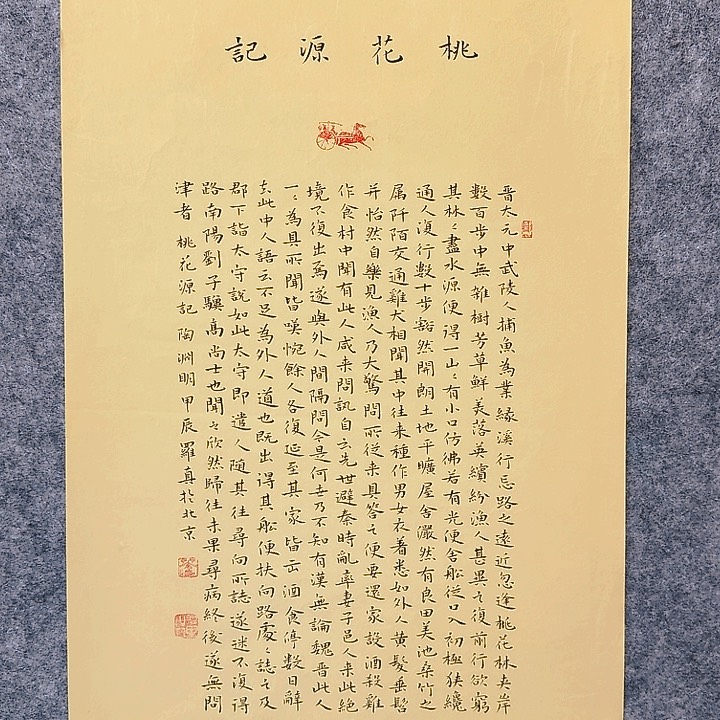 桃花源記
晋太元中武陵人捕魚為業緣溪行忘路之遠近忽逢桃花林夾岸
數百步中無雜樹芳草鮮美落英繽紛漁人甚異之復前行欲窮
其林〻盡水源便得一山〻有小口仿彿若有光便舍船從口入初極狹纔
通人復行數十步豁然開朗土地平曠屋舍儼然有良田美池桑竹之
属阡陌交通雞犬相聞其中往来種作男女衣著悉如外人黄髮垂髫
并怡然自樂見漁人乃大驚問所從来具答之便要還家設酒殺雞
作食村中聞有此人咸来問訊自云先世避秦時亂率妻子邑人来此絶
境不復出焉遂與外人間隔問今是何世乃不知有漢無論魏晉此人
一〻為具所聞皆嘆惋餘人各復延至其家皆出酒食停數日辭
去此中人語云不足為外人道也既出得其船便扶向路處〻誌之及
郡下詣太守說如此太守即遣人随其往尋向所誌遂迷不復得
路南陽劉子驥高尚士也聞之欣然歸往未果尋病終後遂無問
津者 桃花源記 陶渊明 甲辰羅真於北京